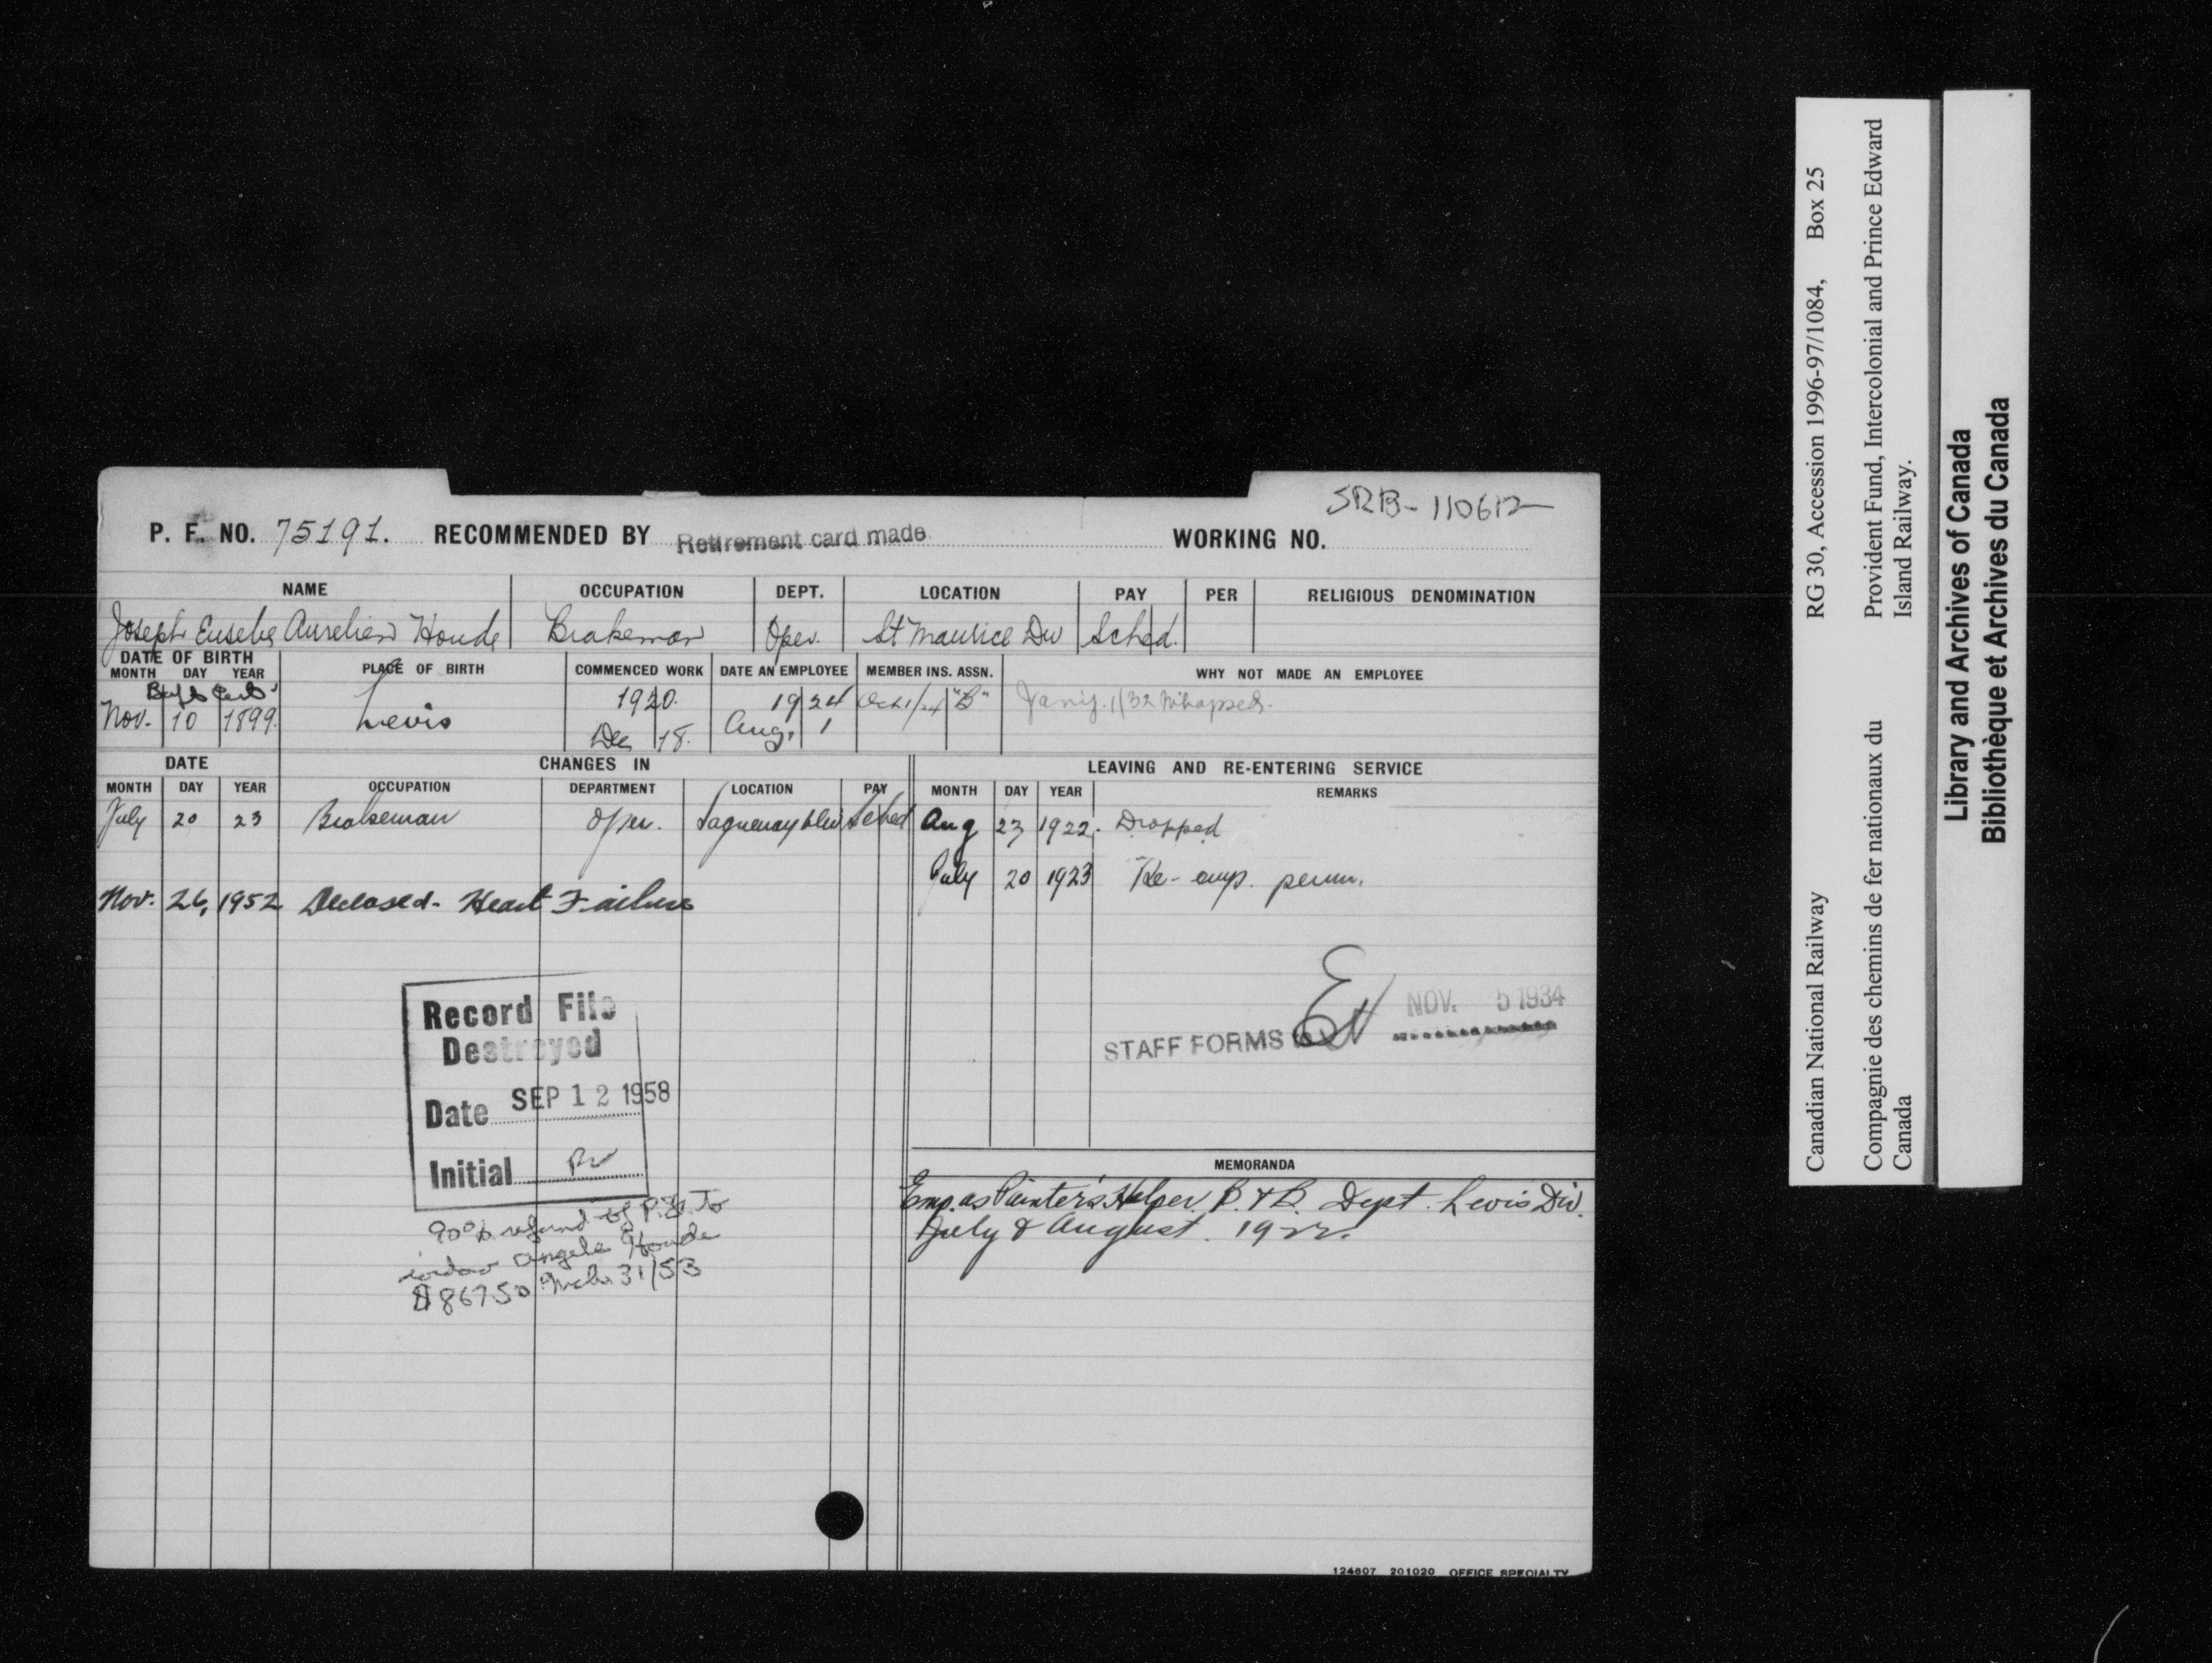 SRB- 110612
P. F. NO. 75191. RECOMMENDED BY Retirement card made WORKING NO.
NAME OCCUPATION DEPT. LOCATION PAY PER RELIGIOUS DENOMINATION
Joseph Eusebe Aurelien Houde Brakeman Oper. St Maurice Div Sched.
DATE OF BIRTH
MONTH DAY YEAR PLACE OF BIRTH COMMENCED WORK DATE AN EMPLOYEE MEMBER INS. ASSN. WHY NOT MADE AN EMPLOYEE
1920. 1924 Oct 1/24 "B"
Nov. 10 1899. Levis Dec 18. Aug. 1
DATE CHANGES IN LEAVING AND RE-ENTERING SERVICE
MONTH DAY YEAR OCCUPATION DEPARTMENT LOCATION PAY MONTH DAY YEAR REMARKS
July 20 23 Brakeman Oper. Saguenay Div Sched Aug 23 1922. Dropped
July 20 1923 Re-emp. perm.
Nov. 26, 1952 Deceased - Heart Failure
Record File
Destroyed
Date SEP 12 1958
Initial
STAFF FORMS NOV. 5 1934
90% refund of P.F. to
widow Angele Houde
$867.50 Mch 31/53
MEMORANDA
Emp. as Painter's Helper. B. & B. Dept. Levis Div.
July & August. 1922.
124807 201020 OFFICE SPECIALTY
Canadian National Railway RG 30, Accession 1996-97/1084, Box 25
Compagnie des chemins de fer nationaux du Canada
Provident Fund, Intercolonial and Prince Edward Island Railway.
Library and Archives of Canada
Bibliothèque et Archives du Canada